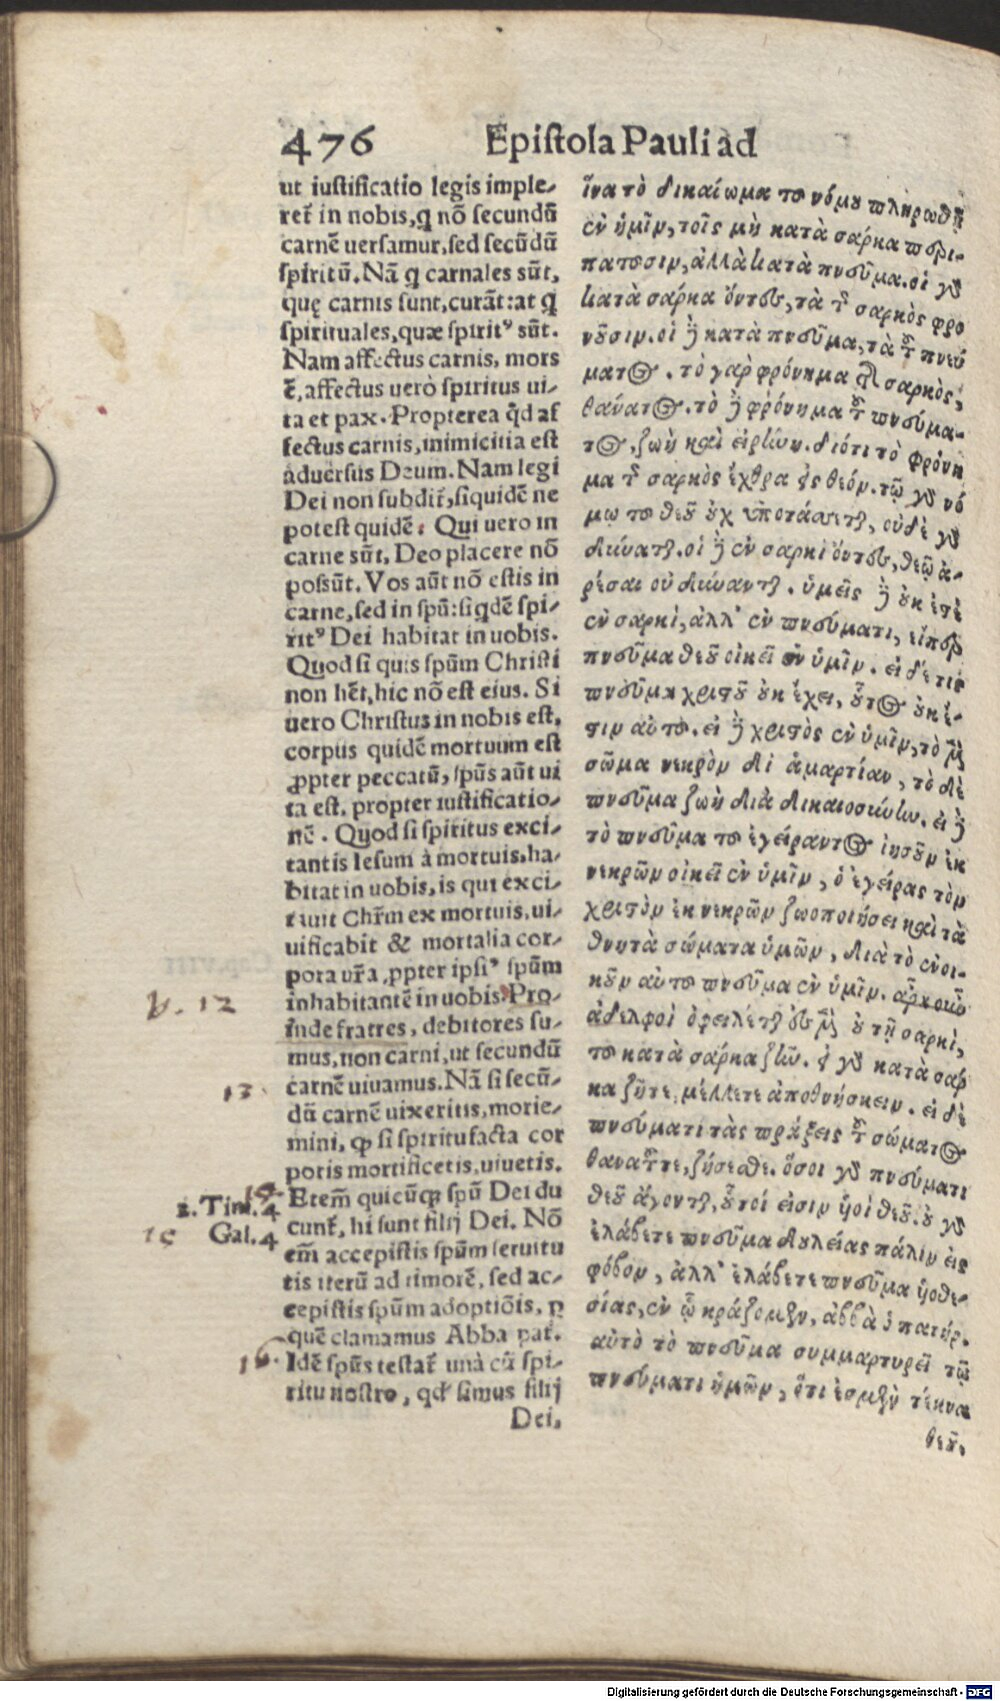 476 Epiſtola Pauli ad
ut iuſtificatio legis imple⸗
ret᷑ in nobis, ꝗ nō ſecundū
carnē uerſamur, ſed ſecūdū
ſpiritū. Nā ꝗ carnales sūt,
quę carnis ſunt, curāt: at ꝗ
ſpirituales, quæ ſpirit⁹ sūt.
Nam affectus carnis, mors
ē, affectus uerò ſpiritus ui⸗
ta et pax. Propterea ꝙd af
fectus carnis, inimicitia eſt
aduerſus Deum. Nam legi
Dei non ſubdit᷑, ſiquidē ne
poteſt quidē: Qui uero in
carne sūt, Deo placere nō
poſſūt. Vos aūt nō eſtis in
carne, ſed in ſpū: ſiꝗdē ſpi⸗
rit⁹ Dei habitat in uobis.
Quod ſi quis ſpūm Chriſti
non hēt, hic nō eſt eius. Si
uero Chriſtus in nobis eſt,
corpus quidē mortuum eſt
ꝓpter peccatū, ſpūs aūt ui
ta eſt, propter iuſtificatio⸗
nē. Quod ſi ſpiritus exci⸗
tantis Ieſum à mortuis, ha⸗
bitat in uobis, is qui exci⸗
tauit Chr̄m ex mortuis, ui⸗
uificabit & mortalia cor⸗
pora ur̄a, ꝓpter ipſi⁹ ſpūm
inhabitantē in uobis. Pro⸗
inde fratres, debitores ſu⸗
mus, non carni, ut ſecundū
carnē uiuamus. Nā ſi ſecū⸗
dū carnē uixeritis, morie⸗
mini, ꝙ ſi ſpiritu facta cor
poris mortificetis, uiuetis.
Etem̄ quicūꝙ ſpū Dei du
cunt᷑, hi ſunt filij Dei. Nō
em̄ accepiſtis ſpūm ſeruitu
tis iterū ad timorē, ſed ac⸗
cepiſtis ſpūm adoptiōis, ꝑ
quē clamamus Abba pat̄.
Idē ſpūs teſtat᷑ unà cū ſpi⸗
ritu noſtro, qd̛ ſimus filij
Dei,
v. 12
13.
14
2. Tim. 4
15 Gal. 4
16.
ἵνα τὸ δικαίωμα τοῦ νόμου πληρωθῇ
ἐν ἡμῖν, τοῖς μὴ κατὰ σάρκα περι-
πατοῦσιν, ἀλλὰ κατὰ πνεῦμα. οἱ γὰρ
κατὰ σάρκα ὄντες, τὰ τῆς σαρκὸς φρο
νοῦσιν. οἱ δὲ κατὰ πνεῦμα, τὰ τοῦ πνεύ
ματος. τὸ γὰρ φρόνημα τῆς σαρκὸς,
θάνατος. τὸ δὲ φρόνημα τοῦ πνεύμα-
τος, ζωὴ καὶ εἰρήνη. διότι τὸ φρόνη
μα τῆς σαρκὸς ἔχθρα εἰς θεόν. τῷ γὰρ νό
μῳ τοῦ θεοῦ οὐχ ὑποτάσσεται, οὐδὲ γὰρ
δύναται. οἱ δὲ ἐν σαρκὶ ὄντες, θεῷ ἀ-
ρέσαι οὐ δύνανται. ὑμεῖς δὲ οὐκ ἐστὲ
ἐν σαρκὶ, ἀλλ' ἐν πνεύματι, εἴπερ
πνεῦμα θεοῦ οἰκεῖ ἐν ὑμῖν. εἰ δέ τις
πνεῦμα χριστοῦ οὐκ ἔχει, οὗτος οὐκ ἔ-
στιν αὐτοῦ. εἰ δὲ χριστὸς ἐν ὑμῖν, τὸ μὲν
σῶμα νεκρὸν δι ἁμαρτίαν, τὸ δὲ
πνεῦμα ζωὴ διὰ δικαιοσύνην. εἰ δὲ
τὸ πνεῦμα τοῦ ἐγείραντος ἰησοῦν ἐκ
νεκρῶν οἰκεῖ ἐν ὑμῖν, ὁ ἐγείρας τὸν
χριστὸν ἐκ νεκρῶν ζωοποιήσει καὶ τὰ
θνητὰ σώματα ὑμῶν, διὰ τὸ ἐνοι-
κοῦν αὐτοῦ πνεῦμα ἐν ὑμῖν. ἄρα οὖν
ἀδελφοὶ ὀφειλέται ἐσμὲν οὐ τῇ σαρκὶ,
τοῦ κατὰ σάρκα ζῆν. εἰ γὰρ κατὰ σάρ
κα ζῆτε, μέλλετε ἀποθνήσκειν. εἰ δὲ
πνεύματι τὰς πράξεις τοῦ σώματος
θανατοῦτε, ζήσεσθε. ὅσοι γὰρ πνεύματι
θεοῦ ἄγονται, οὗτοί εἰσιν υἱοὶ θεοῦ. οὐ γὰρ
ἐλάβετε πνεῦμα δουλείας πάλιν εἰς
φόβον, ἀλλ' ἐλάβετε πνεῦμα υἱοθε-
σίας, ἐν ᾧ κράζομεν, ἀββὰ ὁ πατήρ.
αὐτὸ τὸ πνεῦμα συμμαρτυρεῖ τῷ
πνεύματι ἡμῶν, ὅτι ἐσμὲν τέκνα
θεοῦ.
Digitalisierung gefördert durch die Deutsche Forschungsgemeinschaft - DFG